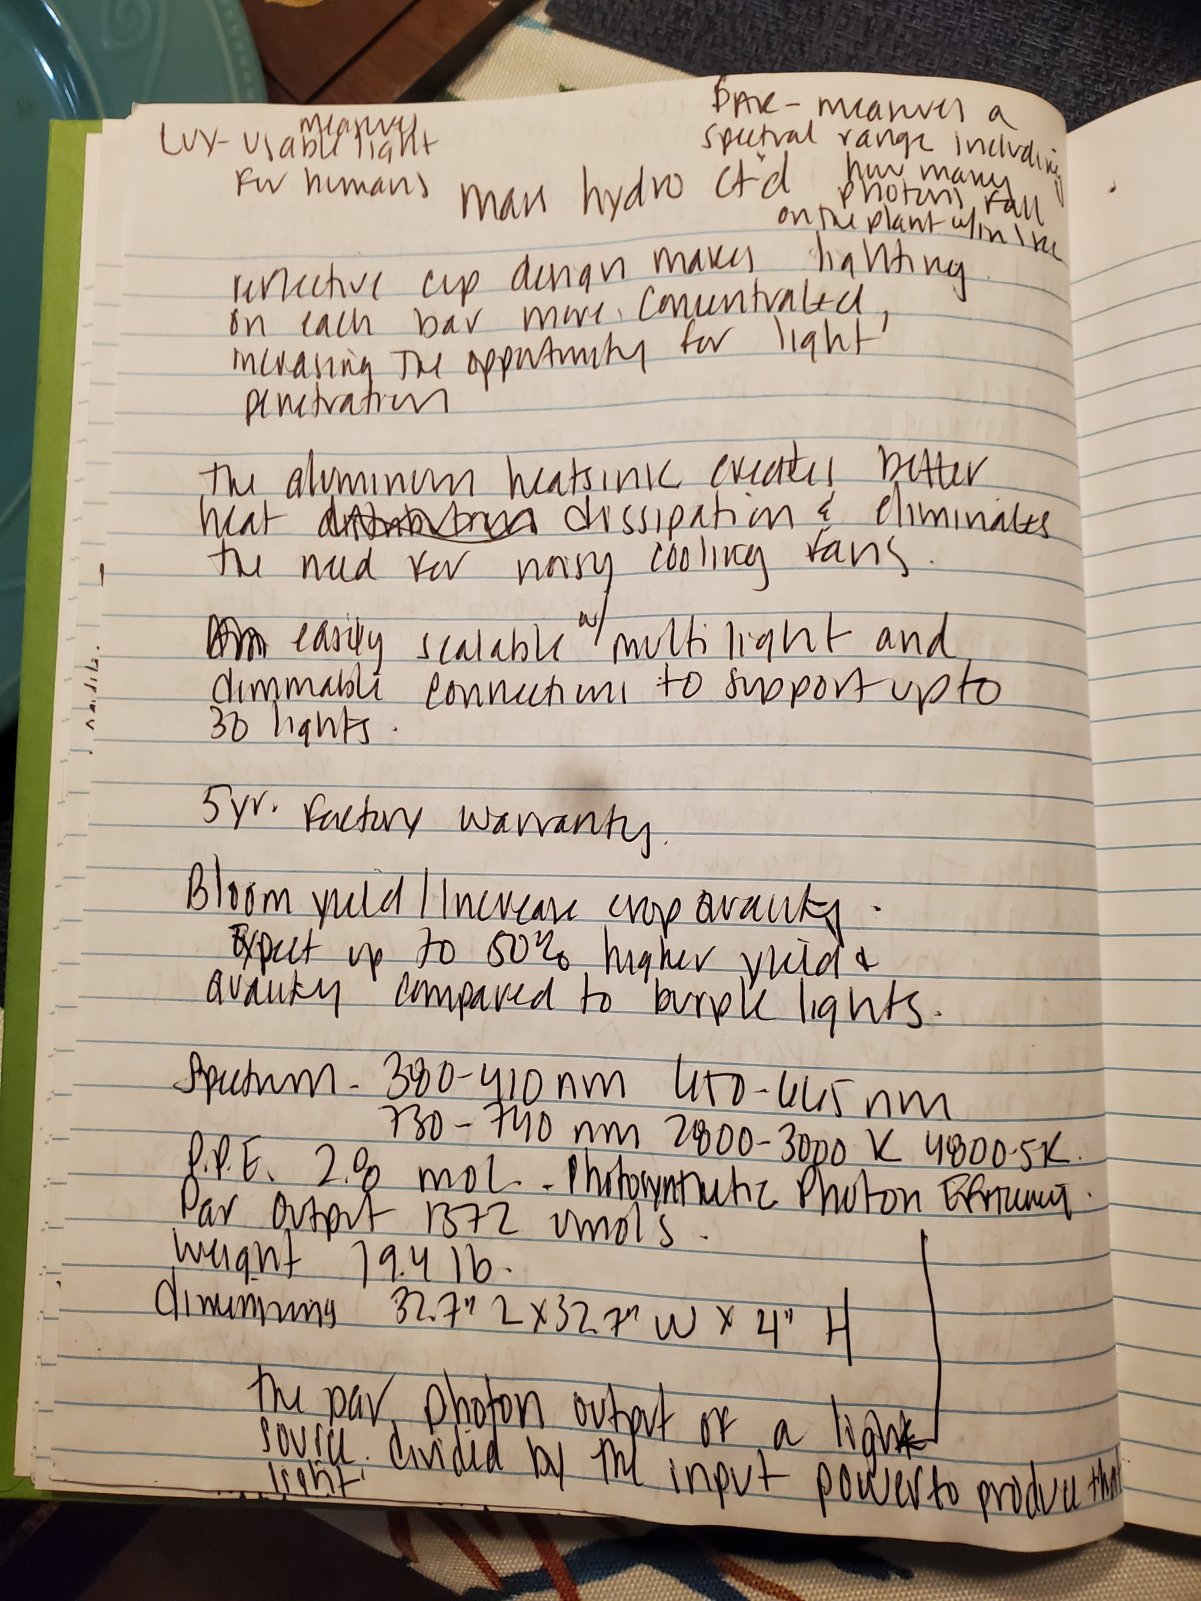 measures
LUX- usable light
for humans
PAR - measures a
spectral range including
how many
photons fall
on the plant w/in 1 sec
mars hydro ct'd
reflective cup design makes lighting
on each bar more concentrated,
increasing the opportunity for light
penetration
The aluminum heatsink creates better
heat dissipation & eliminates
the need for noisy cooling fans.
easily scalable w/ multi light and
dimmable connections to support up to
30 lights.
5yr. factory warranty.
Bloom yield / Increase crop quality.
Expect up to 50% higher yield &
quality compared to burple lights.
Spectrum - 380-410 nm 650-665 nm
730-740 nm 2800-3000 K 4800-5K.
P.P.E. 2.8 mol. - Photosynthetic Photon Efficiency.
Par Output 1372 umols.
weight 19.4 lb.
dimensions 32.7" L x 32.7" W x 4" H
the par photon output of a light
source divided by the input power to produce that
light